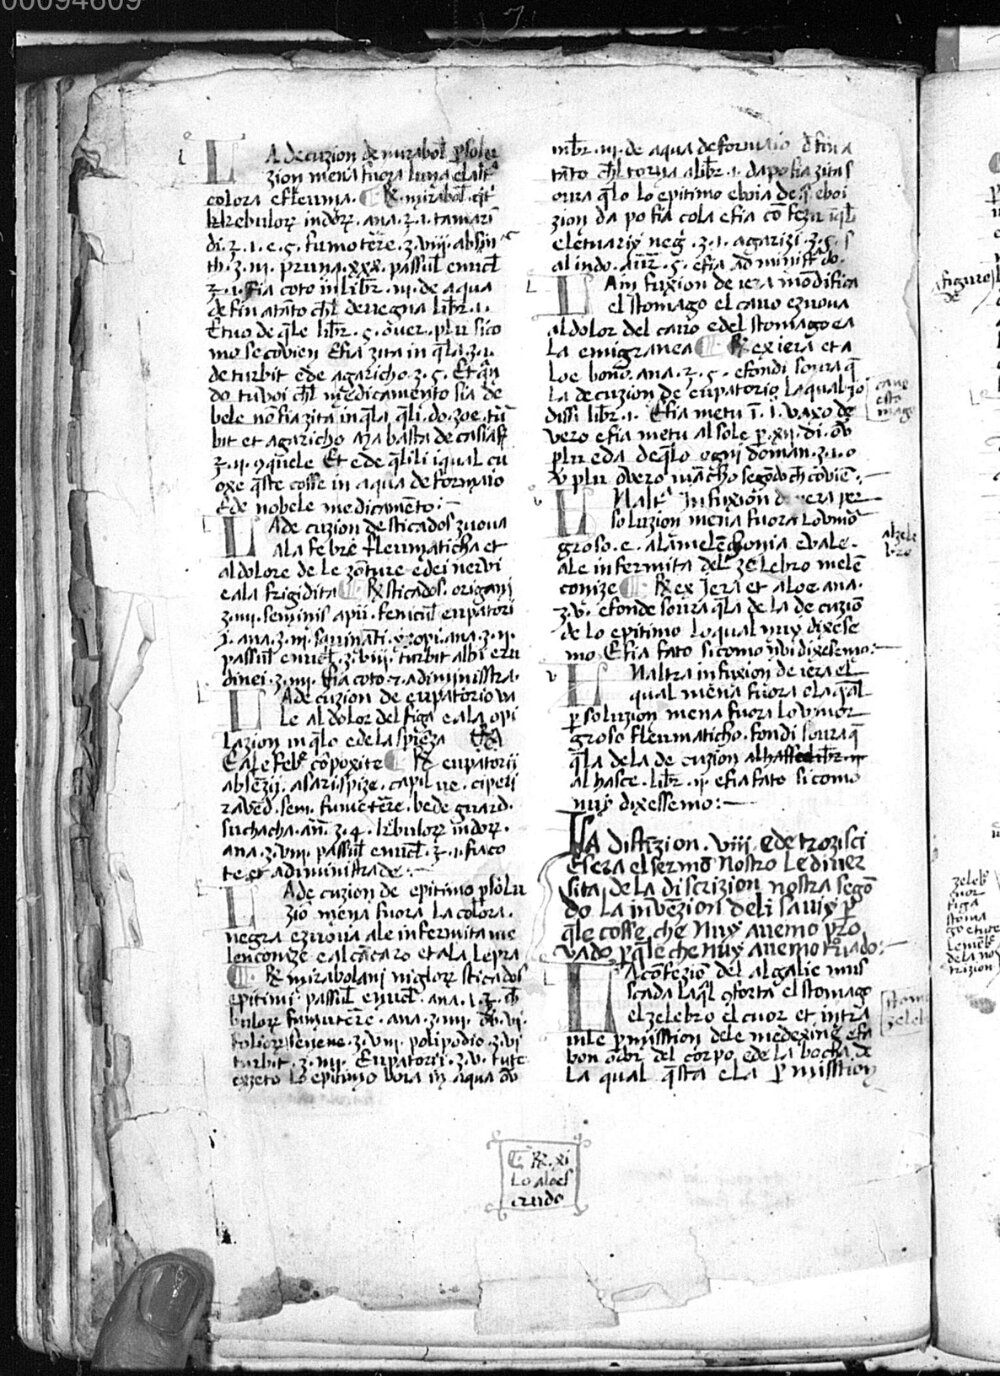 00094609
LA decuzion de mirabol p soluzion
zion mena fuora luna e laltͣ
colora e fleuma. ℞. mirabol. cit̄
kebulor̄ indor̄. ana. ʒ. 1. tamari
di. ʒ. 1. e. ς. fumot̄ere. ʒ. viij. absin
th. ʒ. iij. pruna. xxx. passul̄ enucl̄
ʒ. 1. Fia coto in libr̄. iij. de aqua
de fin atāto ch̄l devegna libr̄. 1.
E tuo de q̄le libr̄. ς. ōver. plu sico
mo se covien Efia zita in q̄la. ʒ. 1.
de turbit e de agaricho. ʒ. ς. Et q̄n
do tu voi ch̄l medicamento sia de
bele nō fia zita in q̄la q̄li. do. zoe. tur
bit et agaricho Ma basta de casiafī
ʒ. ij. Et e de q̄li li iqual cu
oxe q̄ste cosse in aqua de formaio
E de nobele medicamēto:
LA de cuzion de sticados zuova
a la febrē fleumaticha et
al dolore de le zōture e dei nervi
e ala frigidita ℞ sticados. origani
ʒ. iiij. seminis apii. fenicul̄ eupatori
j. ana. ʒ. iij. ana. ʒ. ij.
passul̄ enucl̄. ʒ. viij. turbit albi e ru
dinei. ʒ. iiij. Fia coto ⁊ adiministra.
LA de cuzion de eupatorio va
le al dolor del figa e ala opi
lazion in q̄lo e de la spieza
E a le febr̄ cōpoxite ℞ eupatorii
absēzij. asari. spize. capil ve. ciperi
ravēd. sem. fumet̄ere. be de guard.
suchacha. an̄. ʒ. 4. kebulor̄ indor̄.
ana. ʒ. viij. passul̄ enucl̄. ʒ. 1. fia co
te et adiministrade.
LA de cuzion de epitimo p solu
zio mena fuora la colora.
negra e zuova a le infermita me
lenconize e al cācaro et ala lepra
℞ mirabolani miglior̄ sticados
epitimi passul̄ enucl̄. ana. 1. ʒ. ch̄
bulor̄ fumut̄ere. ana. ʒ. iiij.
folior̄ senene. ʒ. viij. polipodio ʒ. vi
turbit. ʒ. iiij. Eupatorii. ʒ. v. tute
exzeto lo epitimo bora in aqua ōv
mbr̄. iij. de aqua de formaio
tāto ch̄l torna a libr̄. 1. da po fia zitas
oura q̄lo lo epitimo e boia de s̄. e boi
zion da po fia cola e fia cō fezu
eletuarij neg̃. ʒ. 1. agarizi. ʒ. ς. s
al indo. aur̄. ς. efia administ̄do.
LA in fuxion de iera mōdifica
el stomago el cavo e zuova
al dolor del cavo e del stomago e a
La emigranea ℞ ex iera et a
loe bono. ana. ʒ. ς. e fondi soura q̄
La de cuzion de eupatorio. la qual io
dissi libr̄. 1. Efia metu ī. 1. vaxo de
vero e fia metu al sole p. xij. di. ōv
plu e da de q̄lo ogni doman. ʒ. 1. o
ʒ plu overo mācho segōdo ch̄ cōvien.
UNaltr̄ infuxion de iera per
soluzion mena fuora lo umō
groso. e. ala melēchonia e vale.
ale infermita del zelebro melē
conize ℞ ex Jera et aloe ana.
ʒ. v. e fonde soura q̄la de la de cuziō
de lo epitimo lo qual nuy dixese
mo Efia fato si como nui dixesemo:
UNaltra infuxion de iera el
qual mena fuora e la q̄al
p soluzion mena fuora lo umor
groso fleumaticho. fondi soura q̄
q̄la de la de cuzion
al hasce. libr̄. ij. e fia fato si como
nuy dixessemo:
LA distīzion. viii. e de trozisci
E sera el sermō nostro le diver
sita, de la discrizion nostra segō
do la invēzion deli savij p
q̄le cosse, che nuy avemo pro
vado, p q̄le che nuy avemo tr̄iado:
LA cōfezio del algalie mus
scada la q̄l cōforta el stomago
el zelebro el cuor et intra
in le p misstion dele medexine e fa
bon ōdor̄ del corpo e de la bocha, de
La qual q̄sta e la p misstion
cavo
esto
mago
al zele
bro
stoma
zeleb
℞. xi
Lo aloes
crudo
figuro
zeleb̄
cuor
figa
stoma
go e tute
Lemēb̄
dela nu
trizion